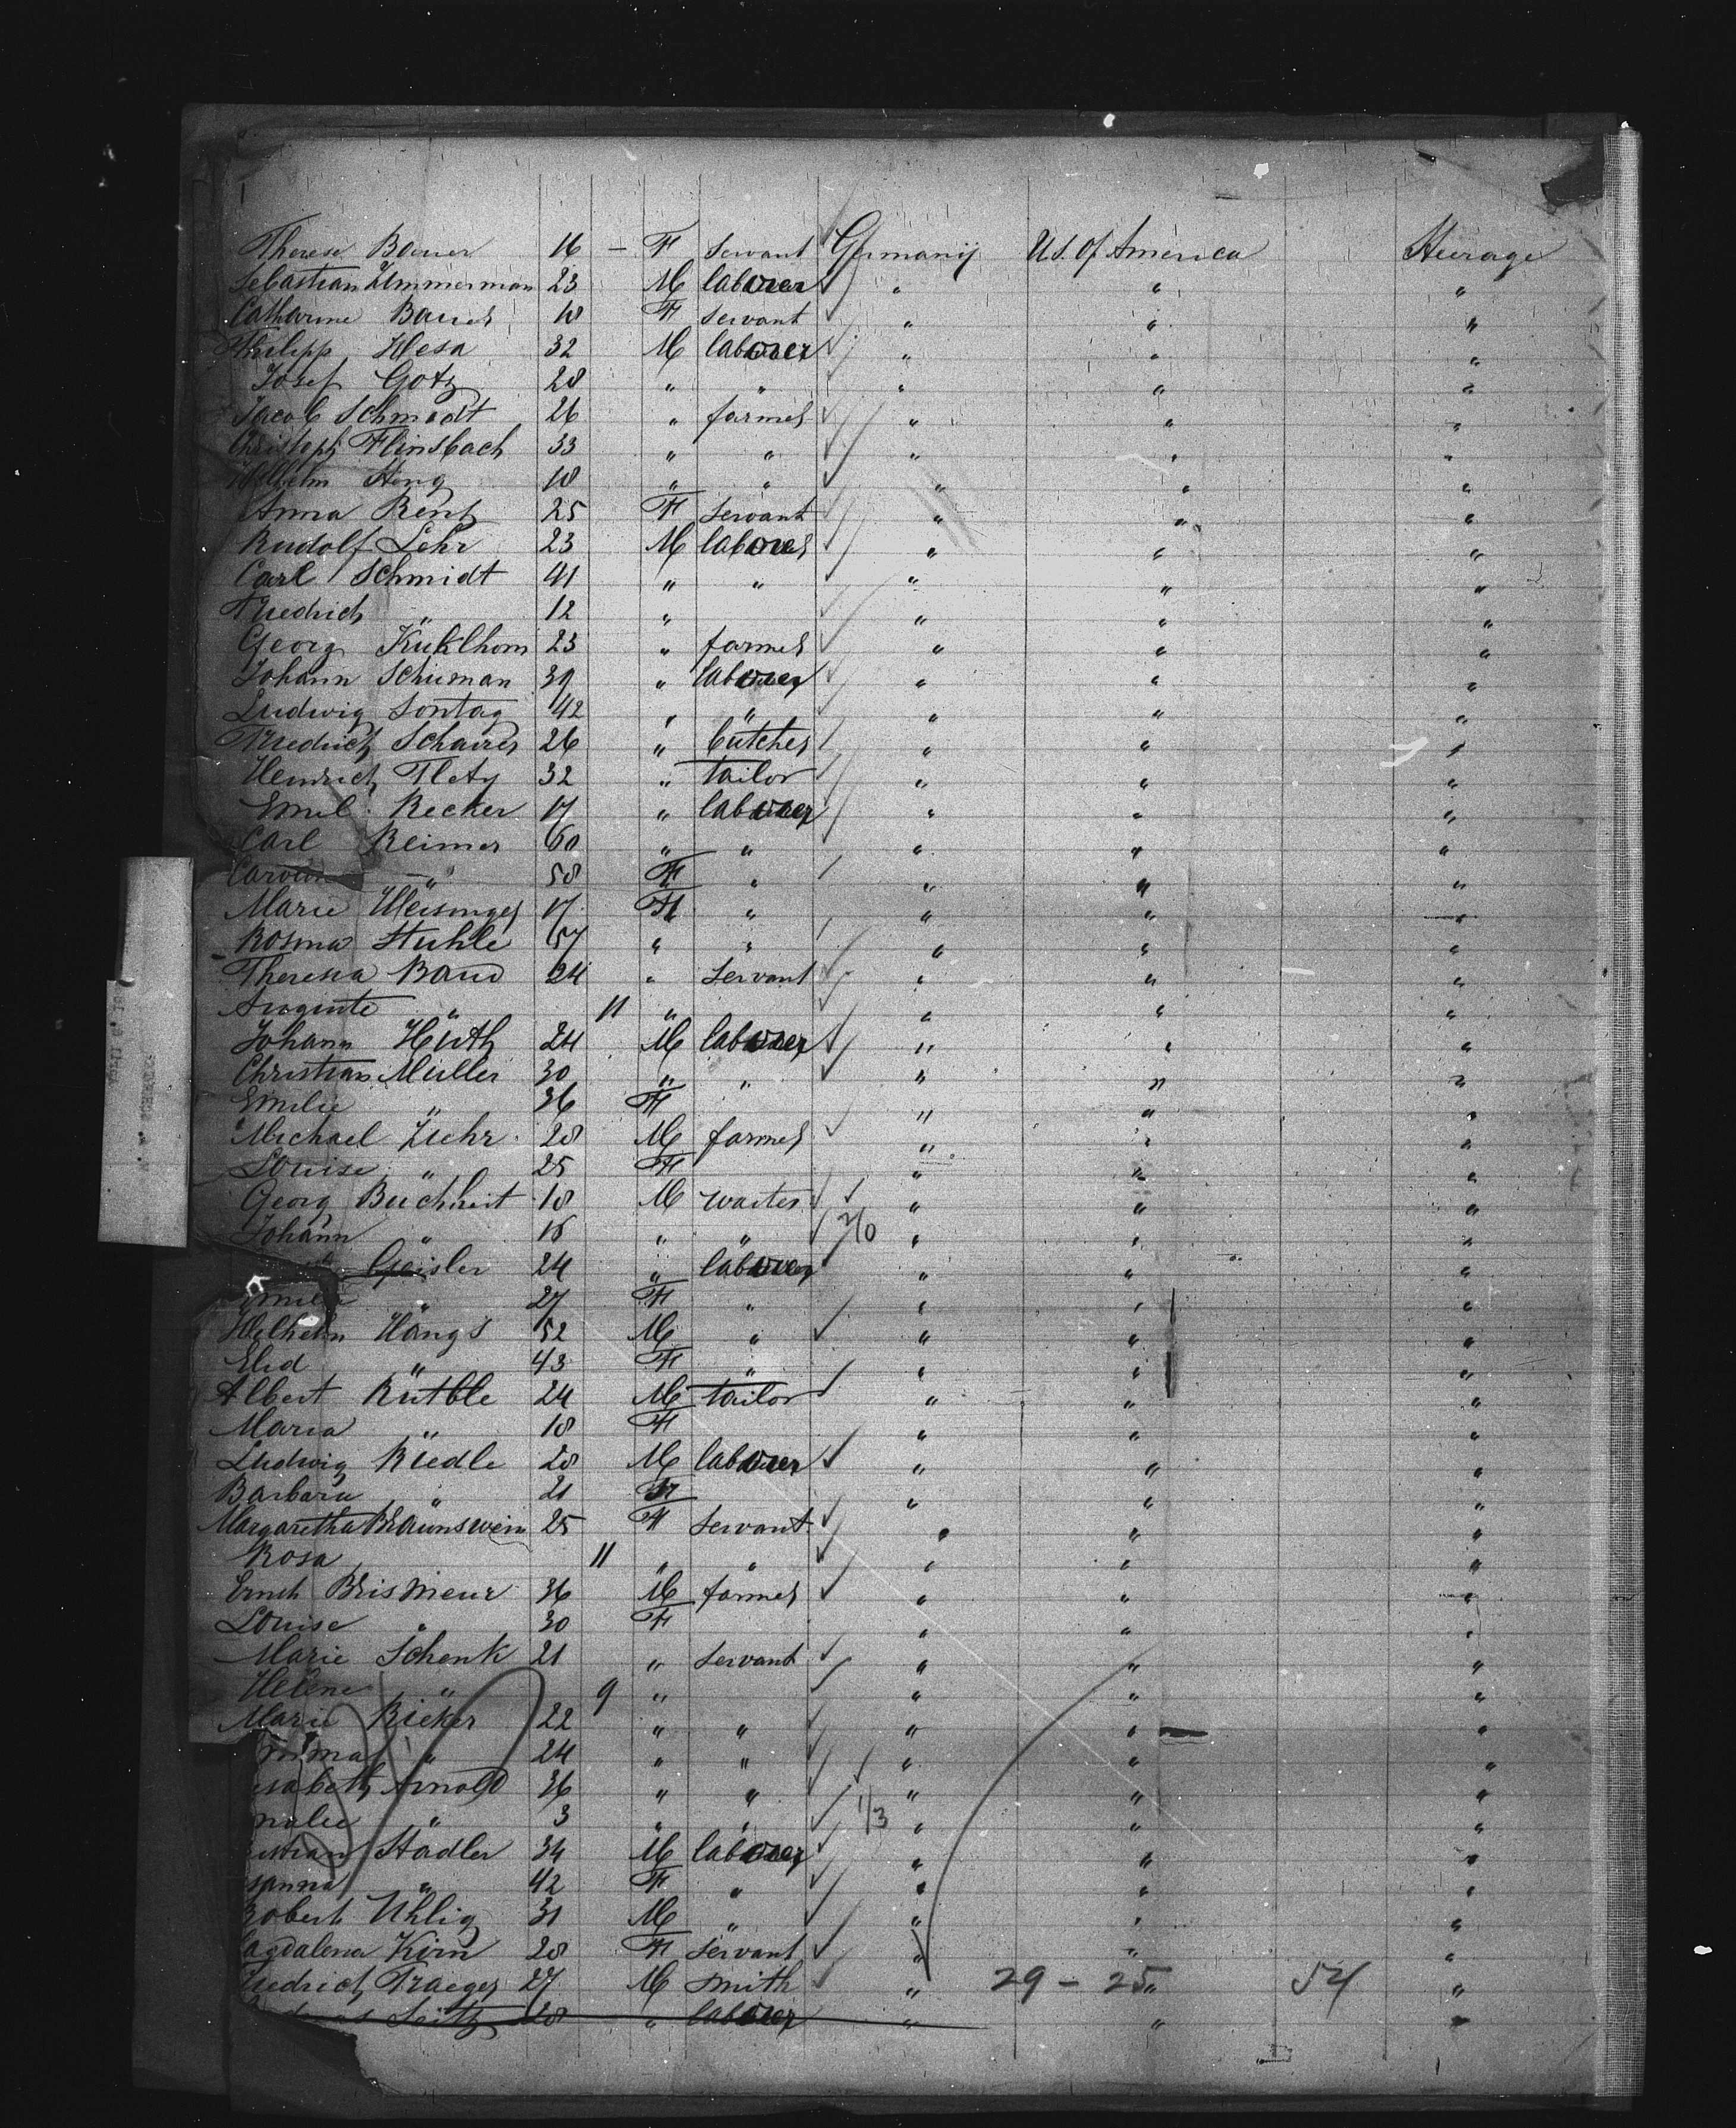 Therese Bauer 16 – F Servant Germany U.S. Of America Steerage
Sebastian Zimmerman 23 M laborer " " "
Catharine Bauer 18 F Servant " " "
Philipp Hesa 32 M laborer " " "
Josef Gotz 28 " " " " "
Jacob Schmidt 26 " farmer " " "
Christoph Flinsbach 33 " " " " "
Wilhelm Heng 18 " " " " "
Anna Rentz 25 F Servant " " "
Rudolf Lehr 23 M laborer " " "
Carl Schmidt 41 " " " " "
Friedrich " 12 " " " "
Georg Kuklhorn 23 " farmer " " "
Johann Schuman 39 " laborer " " "
Ludwig Sontag 42 " " " " "
Friedrich Schairer 26 " butcher " " "
Heinrich Flety 32 " tailor " " "
Emil Recker 17 " laborer " " "
Carl Reimer 60 " " " " "
" 58 F " " " "
Marie Weisinger 17 F " " " "
Rosina Stuhle 57 " " " " "
Theresia Baud 24 " Servant " " "
Auguste " 11 " " " "
Johann Huth 24 M laborer " " "
Christian Müller 30 " " " " "
Emilie " 36 F " " "
Michael Zuehr 28 M farmer " " "
Louise " 25 F " " "
Georg Buchheit 18 M waiter " " "
Johann " 16 " " 2/0 " " "
Geisler 24 " laborer " " "
Emilie " 27 F " " " "
Wilhelm Hängs 52 M " " " "
Elid " 43 F " " " "
Albert Rütble 24 M tailor " " "
Maria " 18 F " " "
Ludwig Riedle 28 M laborer " " "
Barbara " 21 F " " "
Margaretha Braunswein 25 F Servant " " "
Rosa 11 " " " " "
Ernst Brismeur 36 M farmer " " "
Louise " 30 F " " "
Marie Schenk 21 " Servant " " "
Helene " 9 " " " "
Marie Ricker 22 " " " " "
mma " 24 " " " " "
isabeth Arnold 36 " " " " "
malie " 3 " " 1/3 " " "
ristian Stadler 34 M laborer " " "
sanna " 42 F " " " "
Robert Uhlig 31 M " " " "
agdalena Kirn 28 F Servant " " "
riedrich Traeger 27 M Smith " 29 – 25 " 54 "
Seitz 28 " laborer " " "